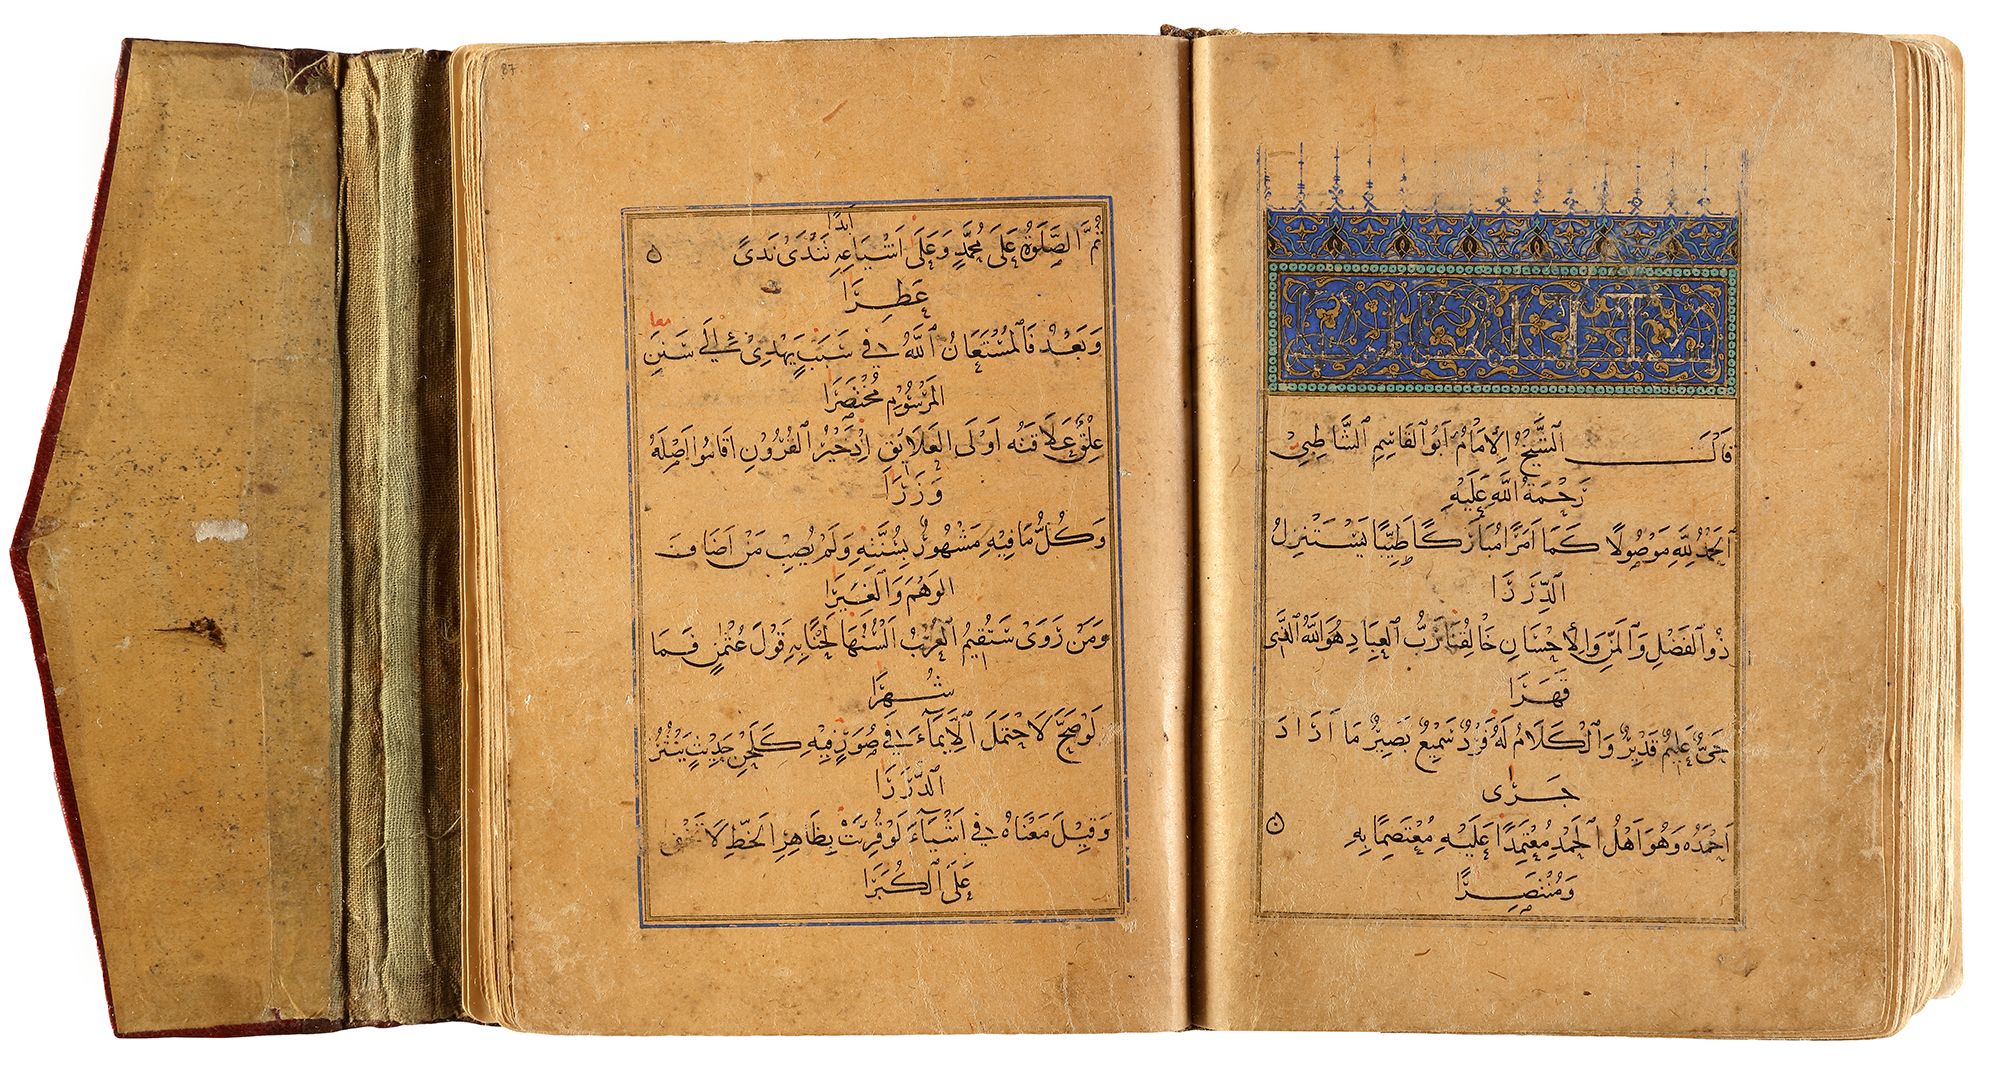 قَالَ الشَّيْخُ الإِمَامُ أَبُو القَاسِمِ الشَّاطِبِيُّ
رَحْمَةُ اللَّهِ عَلَيْهِ
اَلْحَمْدُ لِلَّهِ مَوْصُولًا كَمَا أَمَرَا مُبَارَكًا طَيِّبًا يَسْتَنْزِلُ
الدِّرَرَا
ذُو الْفَضْلِ وَالْمَنِّ وَالإِحْسَانِ خَالِقُنَا رَبُّ الْعِبَادِ هُوَ اللَّهُ الَّذِي
قَهَرَا
حَيٌّ عَلِيمٌ قَدِيرٌ وَالْكَلَامُ لَهُ فَرْدٌ سَمِيعٌ بَصِيرٌ مَا أَرَادَ
جَرَى
أَحْمَدُهُ وَهُوَ أَهْلُ الْحَمْدِ مُعْتَمِدًا عَلَيْهِ مُعْتَصِمًا بِهِ
وَمُنْتَصِرَا
87
ثُمَّ الصَّلَوةُ عَلَى مُحَمَّدٍ وَعَلَى أَشْيَاعِهِ أَبَدًا تَنْدَى نَدًى
عَطِرَا
وَبَعْدُ فَالْمُسْتَعَانُ اللَّهُ فِي سَبَبٍ يَهْدِي إِلَى سَنَنِ
الْمَرْسُومِ مُخْتَصَرَا
عِلْقٌ عَلَاقَتُهُ أَوْلَى الْعَلَائِقِ إِذْ خَيْرُ الْقُرُونِ أَقَامُوا أَصْلَهُ
وَزَرَا
وَكُلُّ مَا فِيهِ مَشْهُورٌ بِسُنَّتِهِ وَلَمْ يُصِبْ مَنْ أَضَافَ
الْوَهْمَ وَالْغِيَرَا
وَمَنْ رَوَى سَتُقِيمُ الْعُرْبُ أَلْسُنُهَا لَحْنًا بِهِ قَوْلَ عُثْمٰنٍ فَمَا
شُهِرَا
لَوْ صَحَّ لَاحْتَمَلَ الْإِيمَاءَ فِي صُوَرٍ فِيهِ كَلَحْنِ حَدِيثٍ يَنْثُرُ
الدُّرَرَا
وَقِيلَ مَعْنَاهُ فِي أَشْيَاءَ لَوْ قُرِئَتْ بِظَاهِرِ الْخَطِّ لَا تَخْفَى
عَلَى الْكُبَرَا